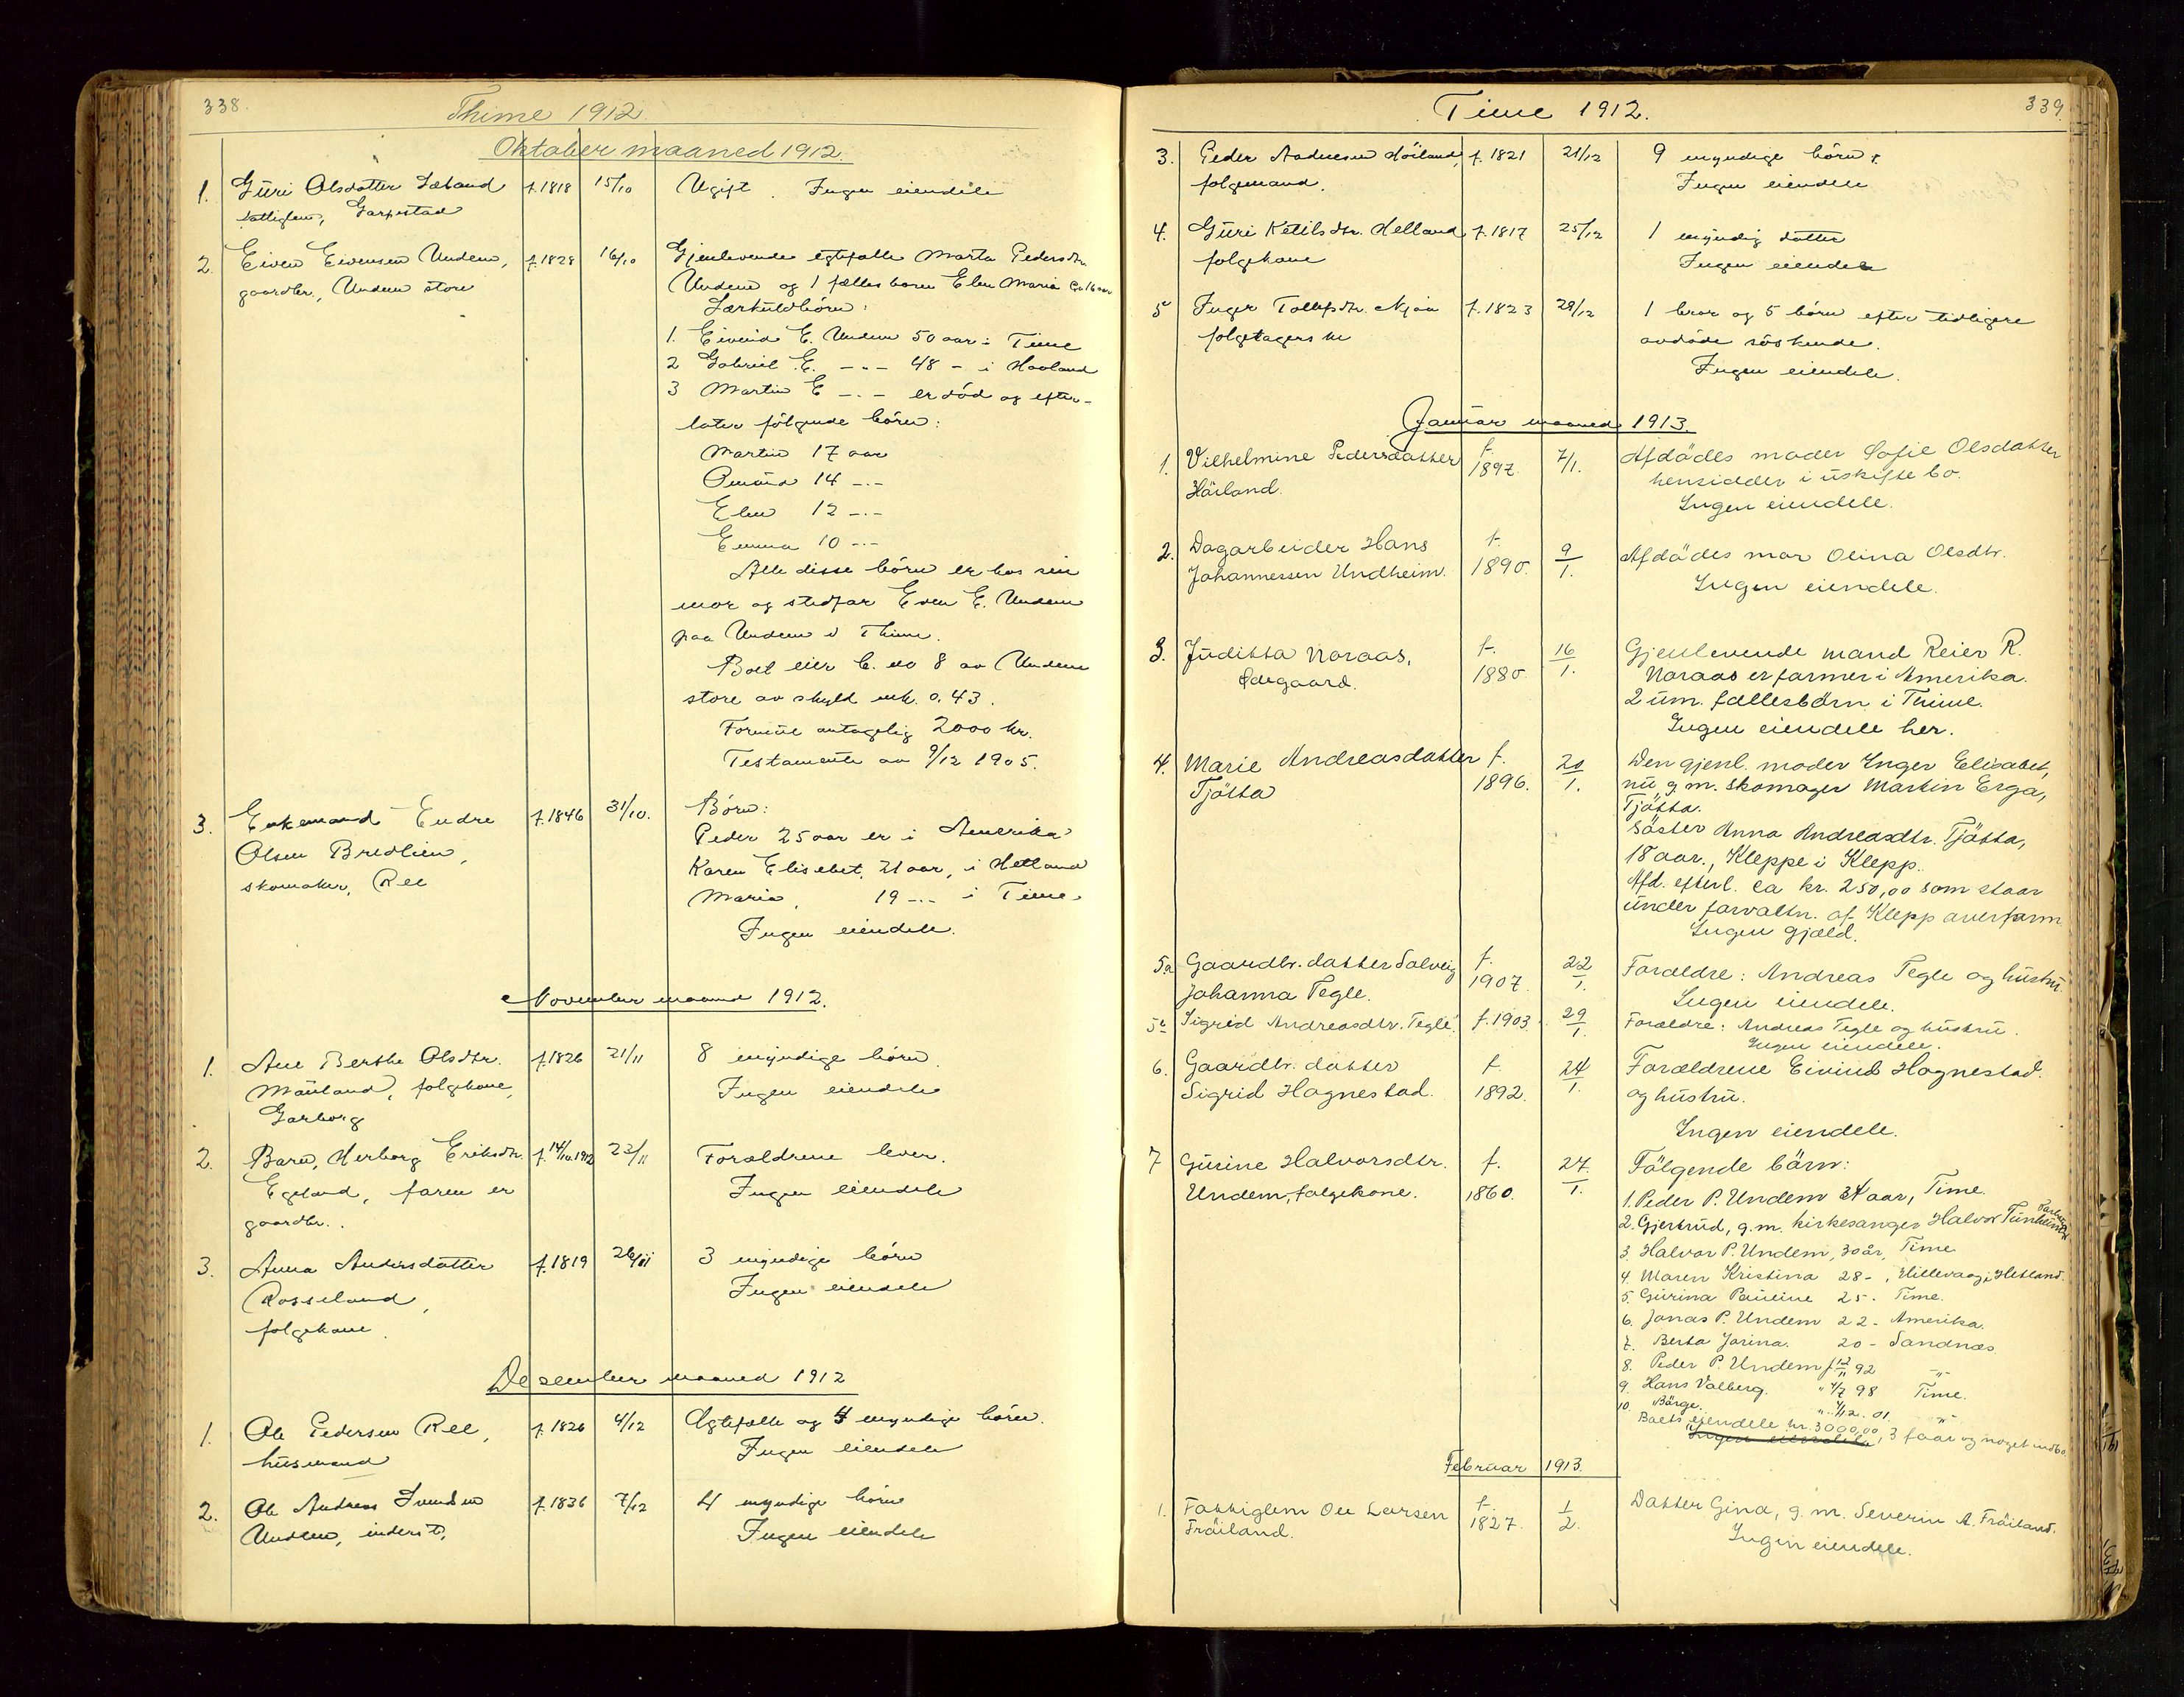 338.
Thime 1912.
Oktober maaned 1912.
1. Guri Olsdatter Læland f. 1818 15/10 Ugift. Ingen eiendele
fattiglem, Garpestad
2. Eiven Eivensen Undem, f. 1828 16/10 Gjenlevende egtefælle Marta Pedersdtr.
gaardbr., Undem store Undem og 1 fælles barn Elen Maria
Særkuldbörn:
1. Eivind E. Undem 50 aar i Time
2 Gabriel E. -.- 48 - i Haaland
3 Martin E -.- er död og efter-
later fölgende börn:
Martin 17 aar
Omund 14 -.-
Elen 12 -.-
Emma 10 -.-
Alle disse börn er hos sin
mor og stedfar Even E. Undem
paa Undem i Thime.
Boet eier b. no 8 av Undem
store av skyld mk. 0.43.
Formue antagelig 2000 kr.
Testamente av 9/12 1905.
3. Enkemand Endre f. 1846 31/10. Börn:
Olsen Bredlien, Peder 25 aar er i Amerika
skomaker, Ree Karen Elisebet, 21 aar, i Hetland
Maria, 19 -.- i Time.
Ingen eiendele.
November maaned 1912.
1. Ane Berthe Olsdtr. f. 1826 21/11 8 myndige börn
Mauland, folgekone, Ingen eiendele
Garborg
2. Barn, Herborg Eriksdtr. f. 14/10.1912 23/11 Forældrene lever.
Egeland, faren er Ingen eiendele
gaardbr.
3. Anna Andersdatter f. 1819 26/11 3 myndige börn
Rosseland, Ingen eiendele
folgekone.
Desember maaned 1912
1. Ole Pedersen Ree, f. 1826 4/12 Ægtefælle og 4 myndige börn.
husmand Ingen eiendele
2. Ole Andreas Svendsen f. 1836 7/12 4 myndige börn
Undem, inderst, Ingen eiendele
339.
Time 1912.
3. Peder Andersen Höiland, f. 1821 21/12 9 myndige börn.
folgemand. Ingen eiendele
4. Guri Ketilsdtr. Helland f. 1817 25/12 1 myndig datter
folgekone Ingen eiendele
5 Inger Tollefsdtr. Njaa f. 1823 28/12 1 bror og 5 börn efter tidligere
folgetagerske avdöde söskende.
Ingen eiendele.
Januar maaned 1913.
1. Vilhelmine Pedersdatter f. 7/1. Afdödes moder Sofie Olsdatter
Höiland. 1897. hensidder i uskifte bo.
Ingen eiendele.
2. Dagarbeider Hans f. 9/1. Afdödes mor Olina Olsdtr.
Johannessen Undheim. 1890. Ingen eiendele.
3. Juditta Noraas, f. 16/1. Gjenlevende mand Reier R.
Ödegaard. 1880. Noraas er farmer i Amerika.
2 um. fællesbörn i Thime.
Ingen eiendele her.
4. Marie Andreasdatter f. 20/1. Den gjenl. moder Inger Elisabet,
Tjötta 1896. nu g. m. skomager Martin Erga,
Tjötta.
Söster Anna Andreasdtr. Tjötta,
18 aar., Kleppe i Klepp.
Afd. efterl. ca kr. 250,00 som staar
under forvaltn. af Klepp overform.
Ingen gjæld.
5a Gaardbr. datter Solveig f. 22/1. Forældre: Andreas Tegle og hustru.
Johanna Tegle. 1907. Ingen eiendele.
5b Sigrid Andreasdtr. Tegle. f. 1903. 29/1. Forældre: Andreas Tegle og hustru.
Ingen eiendele.
6. Gaardbr. datter f. 24/1. Forældrene Eivind Hognestad
Sigrid Hognestad. 1892. og hustru.
Ingen eiendele.
7 Gurine Halvorsdtr. f. 27/1. Fölgende börn:
Undem, folgekone. 1860. 1. Peder P. Undem 34 aar, Time.
2. Gjertrud, g. m. kirkesanger Halvor Tunheim
3. Halvor P. Undem, 30 år, Time
4. Maren Kristina 28 -, Hillevaag i Hetland.
5. Gurina Pauline 25 - Time.
6. Jonas P. Undem 22 - Amerika.
7. Berta Jorina. 20 - Sandnæs
8. Peder P. Undem f 12/11 92 -"-
9. Hans Valberg. " 4/7 98 Time.
10. Börge. " 4/12. 01. -"-
Boets eiendele kr. 3000,00, 3 faar og noget indbo.
Ingen eiendele
Februar 1913.
1. Fattiglem Ole Larsen f. 1/2. Datter Gina, g. m. Severin A. Fröiland.
Fröiland. 1827. Ingen eiendele.